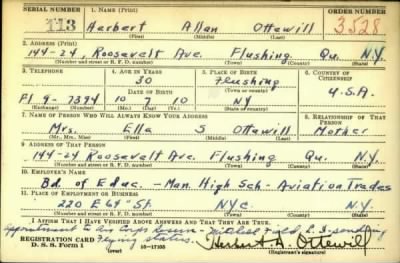 SERIAL NUMBER 1. NAME (Print) ORDER NUMBER
113 Herbert Allan Ottewill 3528
(First) (Middle) (Last)
2. ADDRESS (Print)
144-24 Roosevelt Ave. Flushing Qu. N.Y.
(Number and street or R. F. D. number) (Town) (County) (State)
3. TELEPHONE 4. AGE IN YEARS 5. PLACE OF BIRTH 6. COUNTRY OF CITIZENSHIP
30 Flushing
DATE OF BIRTH (Town or county)
Fl 9-7394 10 7 10 NY U.S.A.
(Exchange) (Number) (Mo.) (Day) (Yr.) (State or country)
7. NAME OF PERSON WHO WILL ALWAYS KNOW YOUR ADDRESS 8. RELATIONSHIP OF THAT PERSON
Mrs. Ella S Ottewill Mother
(Mr., Mrs., Miss) (First) (Middle) (Last)
9. ADDRESS OF THAT PERSON
144-24 Roosevelt Ave. Flushing Qu. N.Y.
(Number and street or R. F. D. number) (Town) (County) (State)
10. EMPLOYER'S NAME
Bd of Educ. - Man. High Sch - Aviation Trades
11. PLACE OF EMPLOYMENT OR BUSINESS
220 E 64 - St. NYC. N.Y.
(Number and street or R. F. D. number) (Town) (County) (State)
I AFFIRM THAT I HAVE VERIFIED ABOVE ANSWERS AND THAT THEY ARE TRUE.
appointment to Air Corps Field L.I. pending
REGISTRATION CARD flying status. Herbert A. Ottewill
D. S. S. Form 1 16-17105 (Registrant's signature)